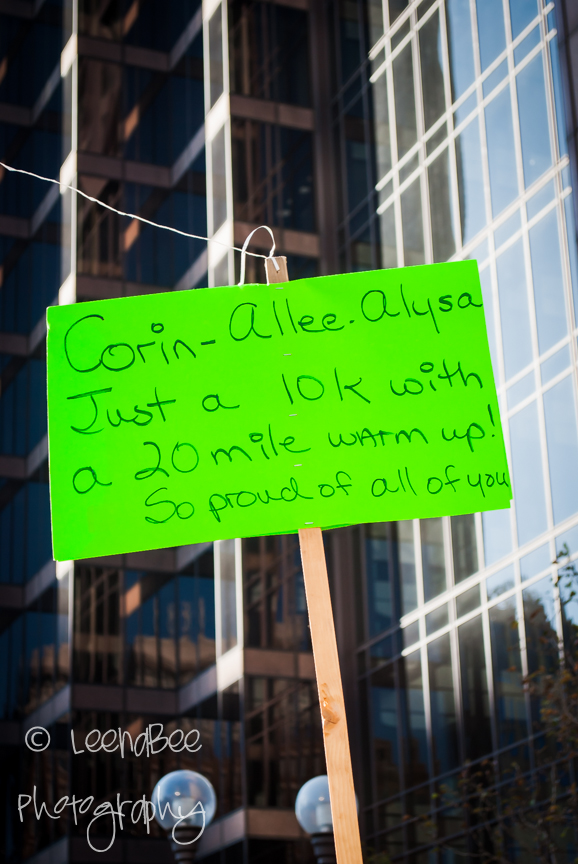 Corin-Allee-Alysa
Just a 10k with
a 20 mile warm up!
So proud of all of you
© LeenaBee
Photography